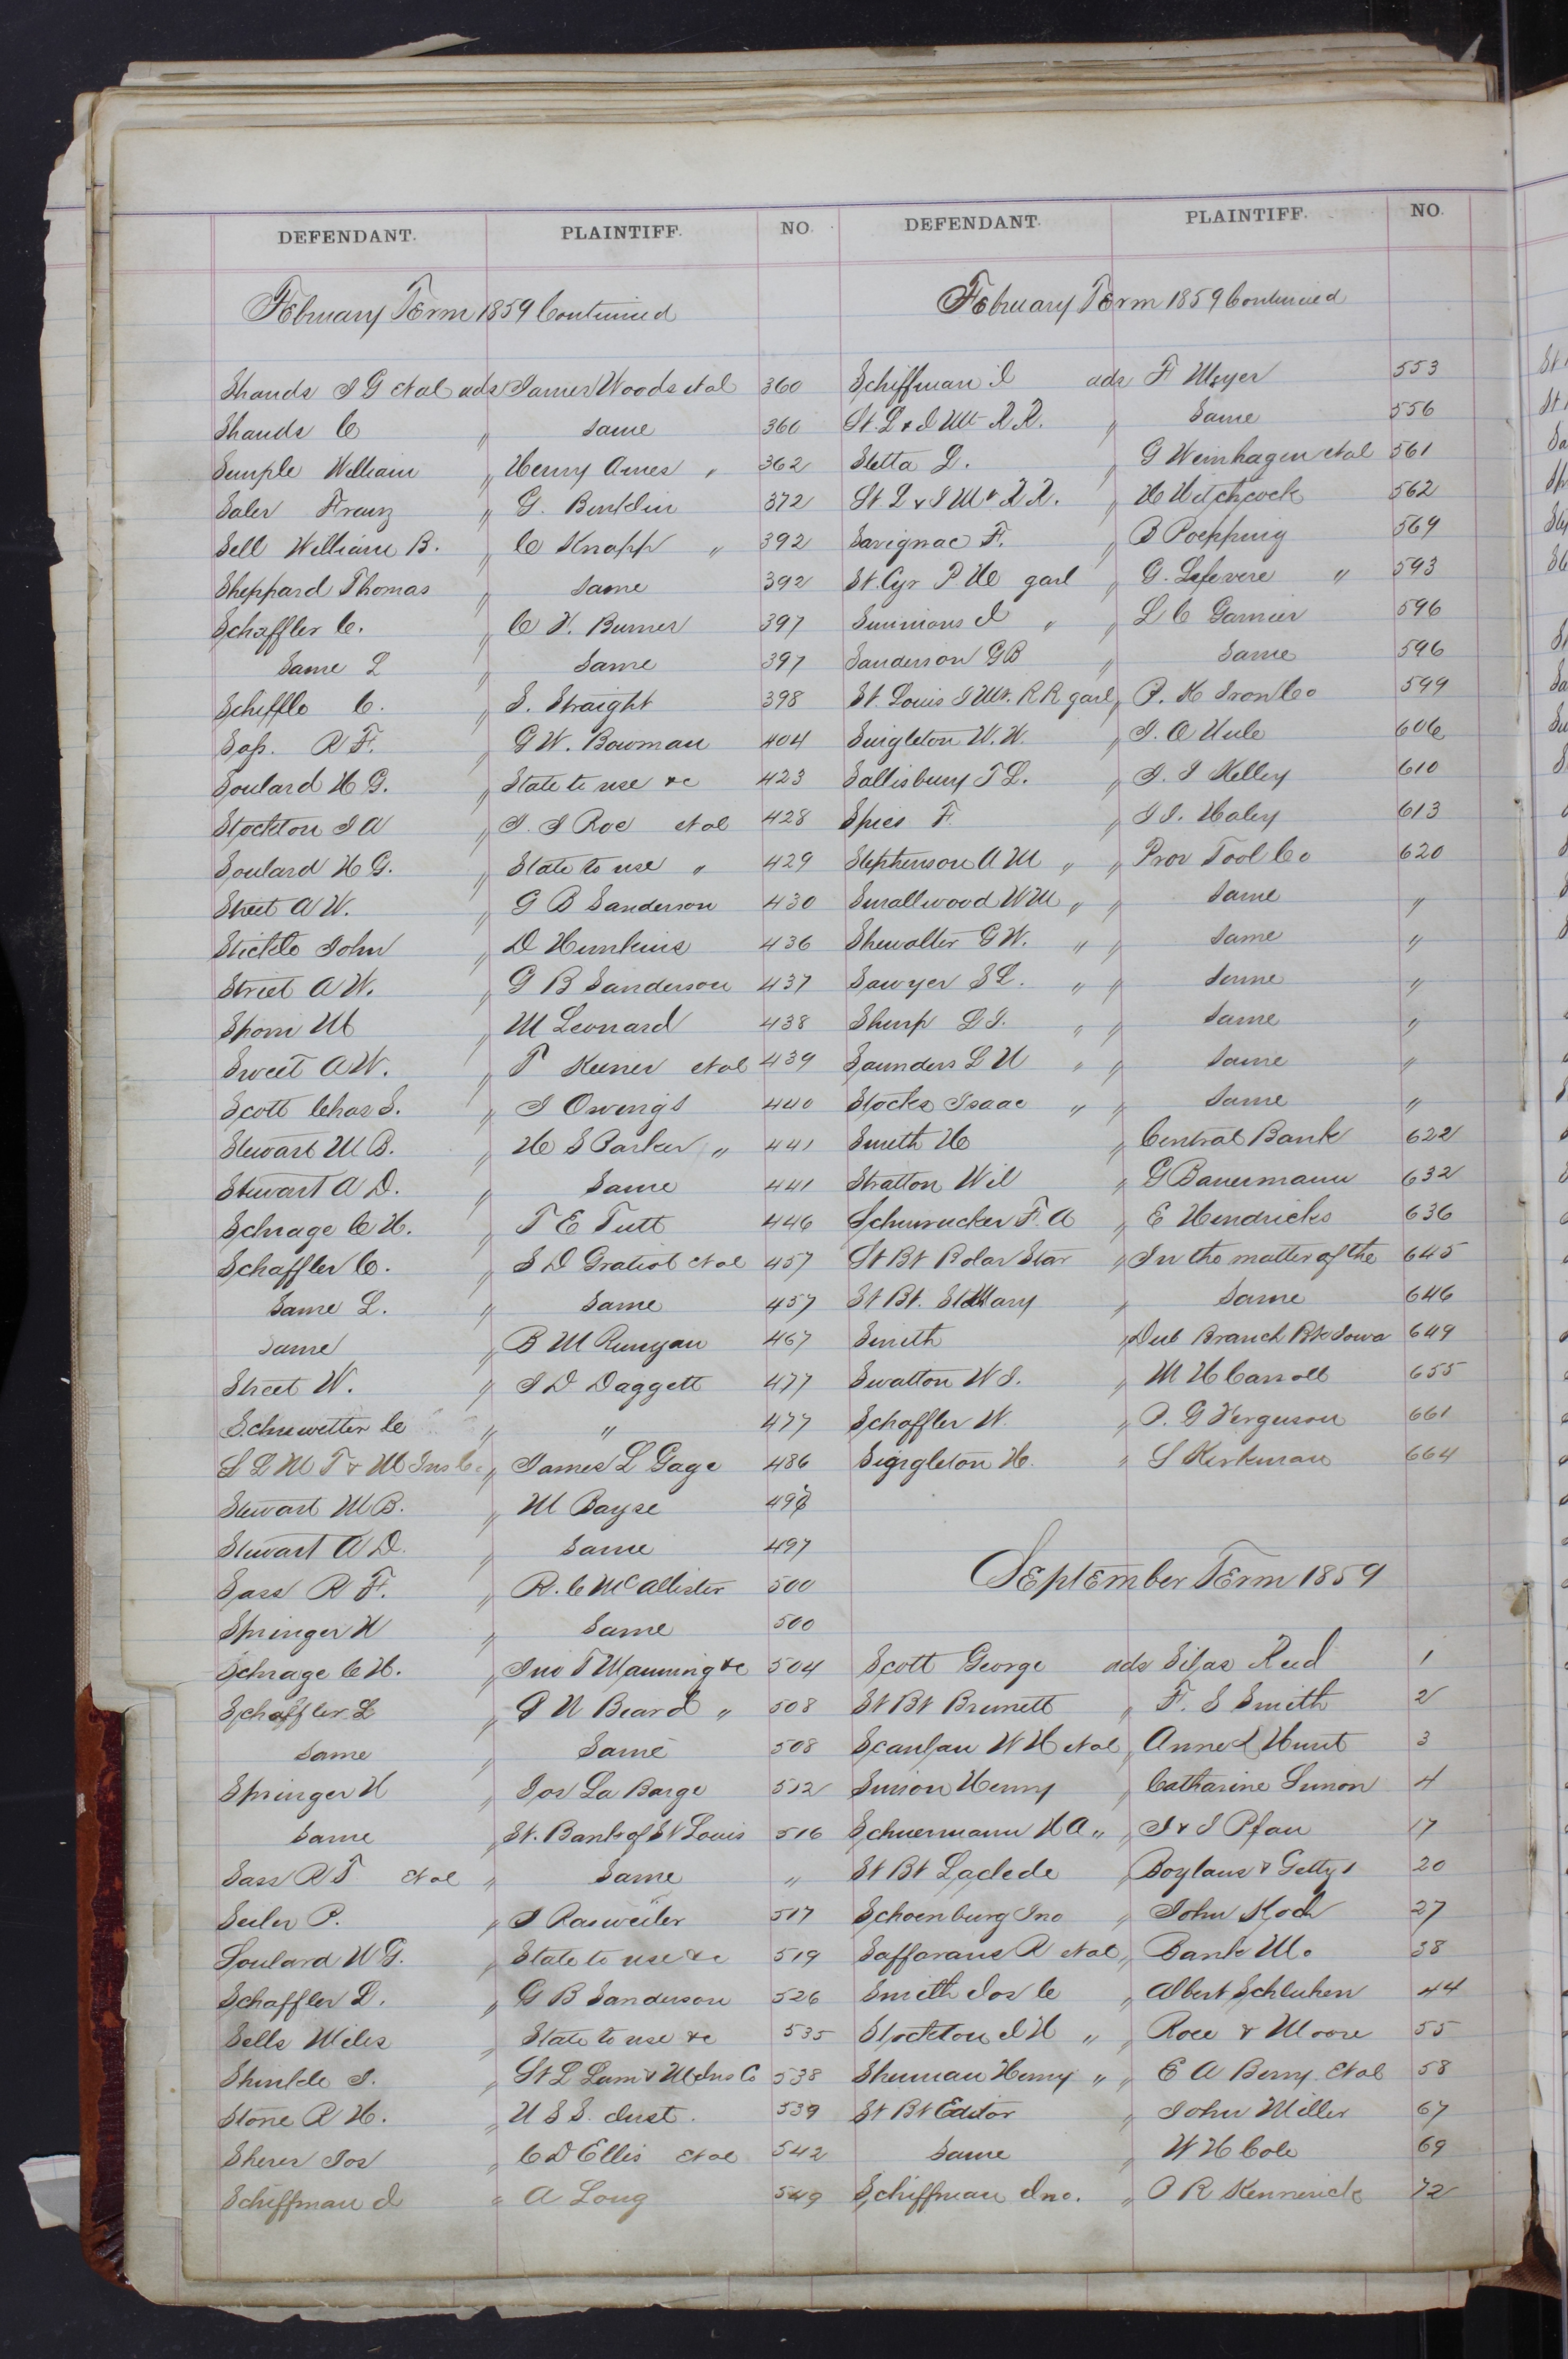 DEFENDANT. PLAINTIFF. NO.
February Term 1859 Continued
Shands J G et al ads James Woods et al 360
Shands C " Same 360
Semple William " Henry Ames " 362
Saler Franz " G. 372
Sell William B. " C Knapp " 392
Sheppard Thomas " Same 392
Schaffler C. " C F. 397
Same L " Same 397
Schifflo C. " S. Straight 398
Sass. R F. " G W. Bowman 404
Soulard H G. " State to use &c 423
Stockton J A " J. J Roe et al 428
Soulard H G. " State to use " 429
Street A W. " G B Sanderson 430
Stickle John " D Hunkins 436
Street A W. " G B Sanderson 437
M " M Leonard 438
Sweet A W. " T Keener et al 439
Scott Chas S. " J Owings 440
Stewart M B. " H S Parker " 441
Stewart A D. " Same 441
Schrage C H. " T E Tutt 446
Schaffler C. " S D Gratiot et al 457
Same L. " Same 457
Same " B M Runyan 467
Street W. " J D Daggett 477
Schuwetter C " " 477
S L M F & M Ins Co " James L Gage 486
Stewart M B. " M Bayse
Stewart A D. " Same 497
Sass R F. " R. C McAllister 500
Springer H " Same 500
Schrage C H. " Jno T Manning &c 504
Schaffler L " G N Beard " 508
Same " Same 508
Springer H " Jos La Barge 512
Same " St. Bank of St Louis 516
Sass R T et al " Same "
Seiler P. " J Rasweiler 517
Soulard H G. " State to use &c 519
Schaffler L. " G B Sanderson 526
Sells Miles " State to use &c 535
Shinkle J. " St L Lum & M Ins Co 538
Stone R H. " U S S. Inst. 539
Sherer Jos " C D Ellis et al 542
Schiffman J " A Long 549
DEFENDANT. PLAINTIFF. NO.
February Term 1859 Continued
Schiffman J ads F Meyer 553
St. L & I Mt R R. " Same 556
Stetta L. " G Weinhagen et al 561
St. L & I Mt R R. " H Hitchcock 562
Savignac F. " B Poepping 569
St. Cyr P H garl " G. Lefevere " 593
Simmons J " " L C Garnier 596
Sanderson G B " Same 596
St. Louis I Mt. R R garl " P. K Iron Co 599
Singleton W. W. " J. O 606
Sallisbury T L. " J. J Kelley 610
Spies F. " J J. Haley 613
Stephenson A M " " Prov Tool Co 620
Smallwood W M " " Same "
Shewalter G W. " " Same "
Sawyer S L. " " Same "
L J. " " Same "
Saunders L U " " Same "
Stocks Isaac " " Same "
Smith H " Central Bank 622
Stratton Wil " G Bauermann 632
F. A " E Hendricks 636
St Bt Polar Star " In the matter of the 645
St Bt. St Mary " Same 646
Smith " Dub Branch Bk Iowa 649
Swatton W J. " M H Carroll 655
Schaffler W. " P. G Ferguson 661
Singleton H. " S Kirkman 664
September Term 1859
Scott George ads Silas Reed 1
St Bt Brunett " F. S Smith 2
Scanlan W H et al " Anne L Hunt 3
Simon Henry " Catharine Simon 4
Schuermann H A " " J & J Pfau 17
St Bt Laclede " Boylans & Gettys 20
Schoenburg Jno " John Koch 27
Saffarans R et al " Bank Mo 38
Smith Jos C " Albert Schluken 44
Stockton J H " " Roee & Moore 55
Sherman Henry " " E A Berry et al 58
St Bt Editor " John Miller 67
Same " W H Cole 69
Schiffman Jno. " P R Kennerick 72